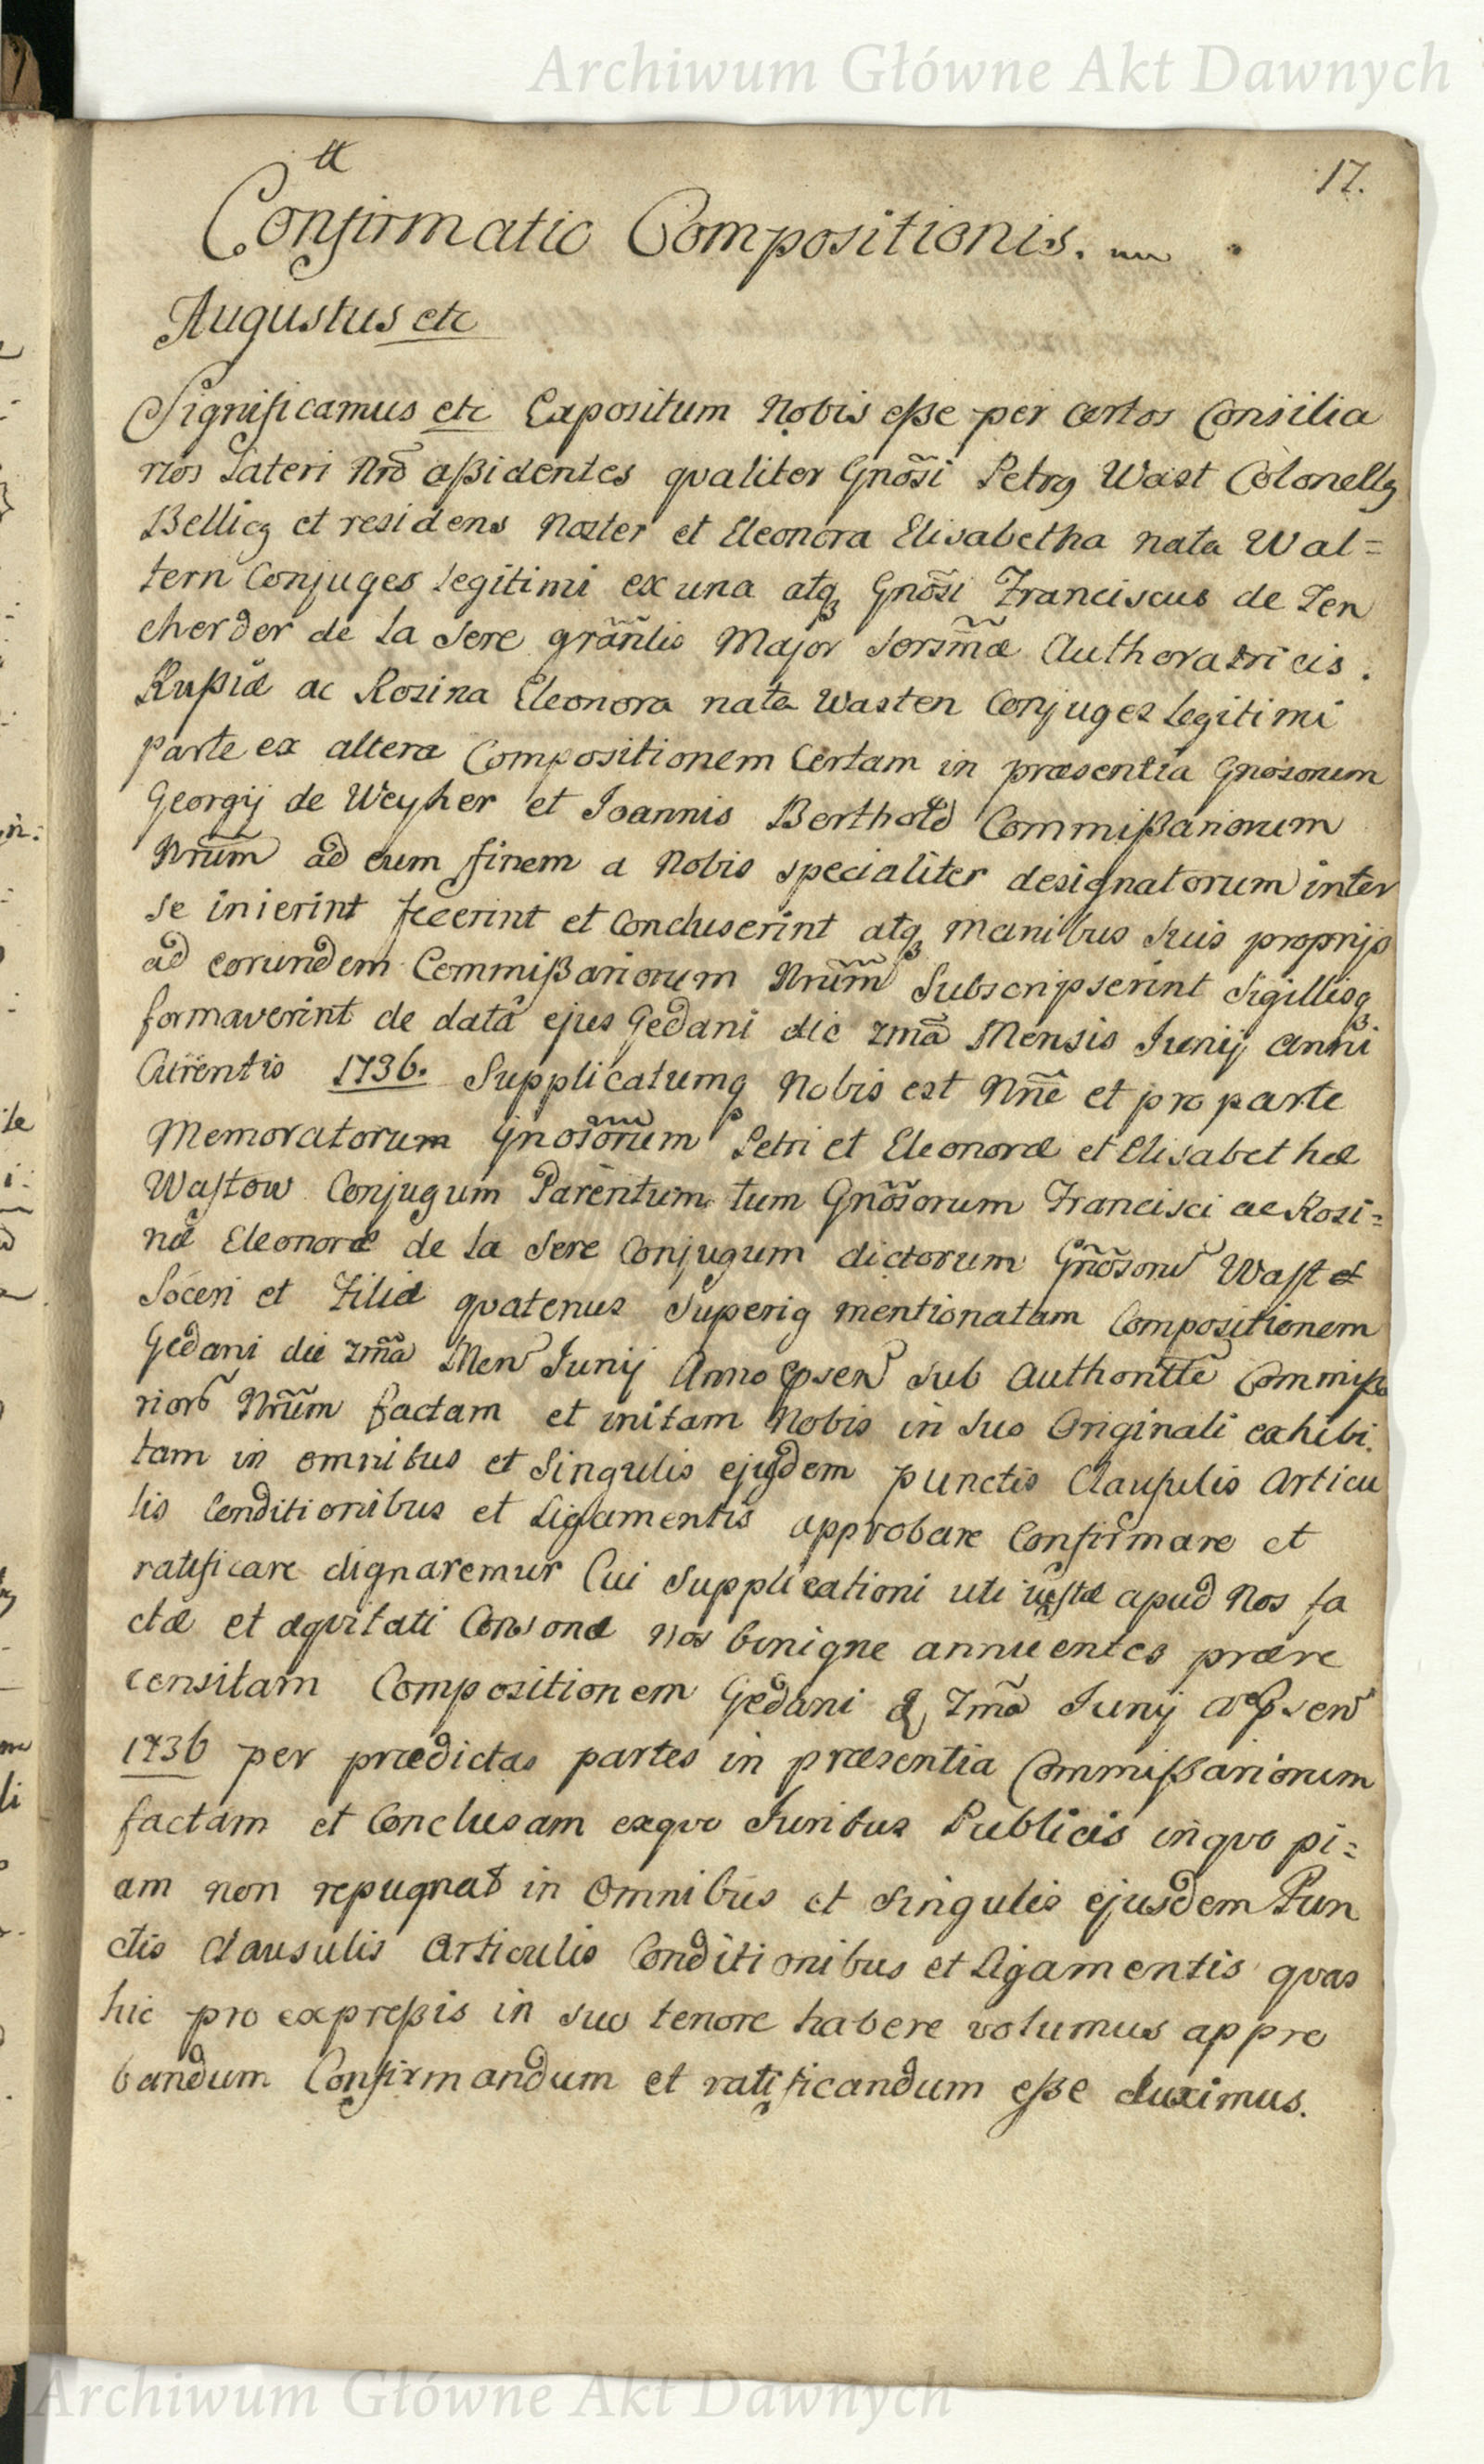 Archiwum Główne Akt Dawnych
17.
Confirmatio Compositionis.
Augustus etc
Significamus etc Expositum Nobis eße per certos Consilia
rios Lateri Nrõ aßidentes qvaliter Gnõsi Petrq Wast Colonellq
Bellicq et residens Noster et Eleonora Elisabetha nata Wal=
tern Conjuges legitimi ex una atq Gnõsi Franciscus de Ten
cherder de La Sere grãñlis Major Sersm̃æ Authoratricis.
Rußiæ ac Rosina Eleonora nata Wasten Conjuges legitimi
parte ex altera Compositionem Certam in præsentia Gnosorum
Georgij de Weyher et Joannis Berthold Commißariorum
Nrũm ad eum finem a Nobis specialiter designatorum inter
se inierint fecerint et Concluserint atq manibus suis proprijs
ad eorundem Commißariorum Nrũm Subscripserint Sigillisq
formaverint de data ejus Gedani die 7mã Mensis Junij anni
Curentis 1736. Supplicatumq Nobis est Nñe et pro parte
Memoratorum Gnosorum Petri et Eleonoræ et Elisabethæ
Wastow Conjugum Parentum tum Gnõsorum Francisci ac Rosi=
næ Eleonoræ de La Sere Conjugum dictorum Gñõsorũ Wast et
Soceri et Filiæ qvatenus Superiq mentionatam Compositionem
Gedani die 7mã Men Junij Anno psen sub Authoritte Commißa
riorũ Nrũm factam et initam Nobis in suo Originali exhibi
tam in omnibus et Singulis ejusdem punctis Clausulis Articu
lis Conditionibus et Ligamentis approbare Confirmare et
ratificare dignaremur Cui Supplicationi uti justæ apud Nos fa
ctæ et æqvitati Consonæ Nos benigne annuentes prære
censitam Compositionem Gedani d. 7mã Junij psen
1736 per prædictas partes in præsentia Commißariorum
factam et Conclusam exqvo Juribus Publicis inqvo pi=
am non repugnat in Omnibus et Singulis ejusdem Pun
ctis Clausulis Articulis Conditionibus et Ligamentis qvas
hic pro expreßis in suo tenore habere volumus appro
bandum Confirmandum et ratificandum eße duximus.
Archiwum Główne Akt Dawnych